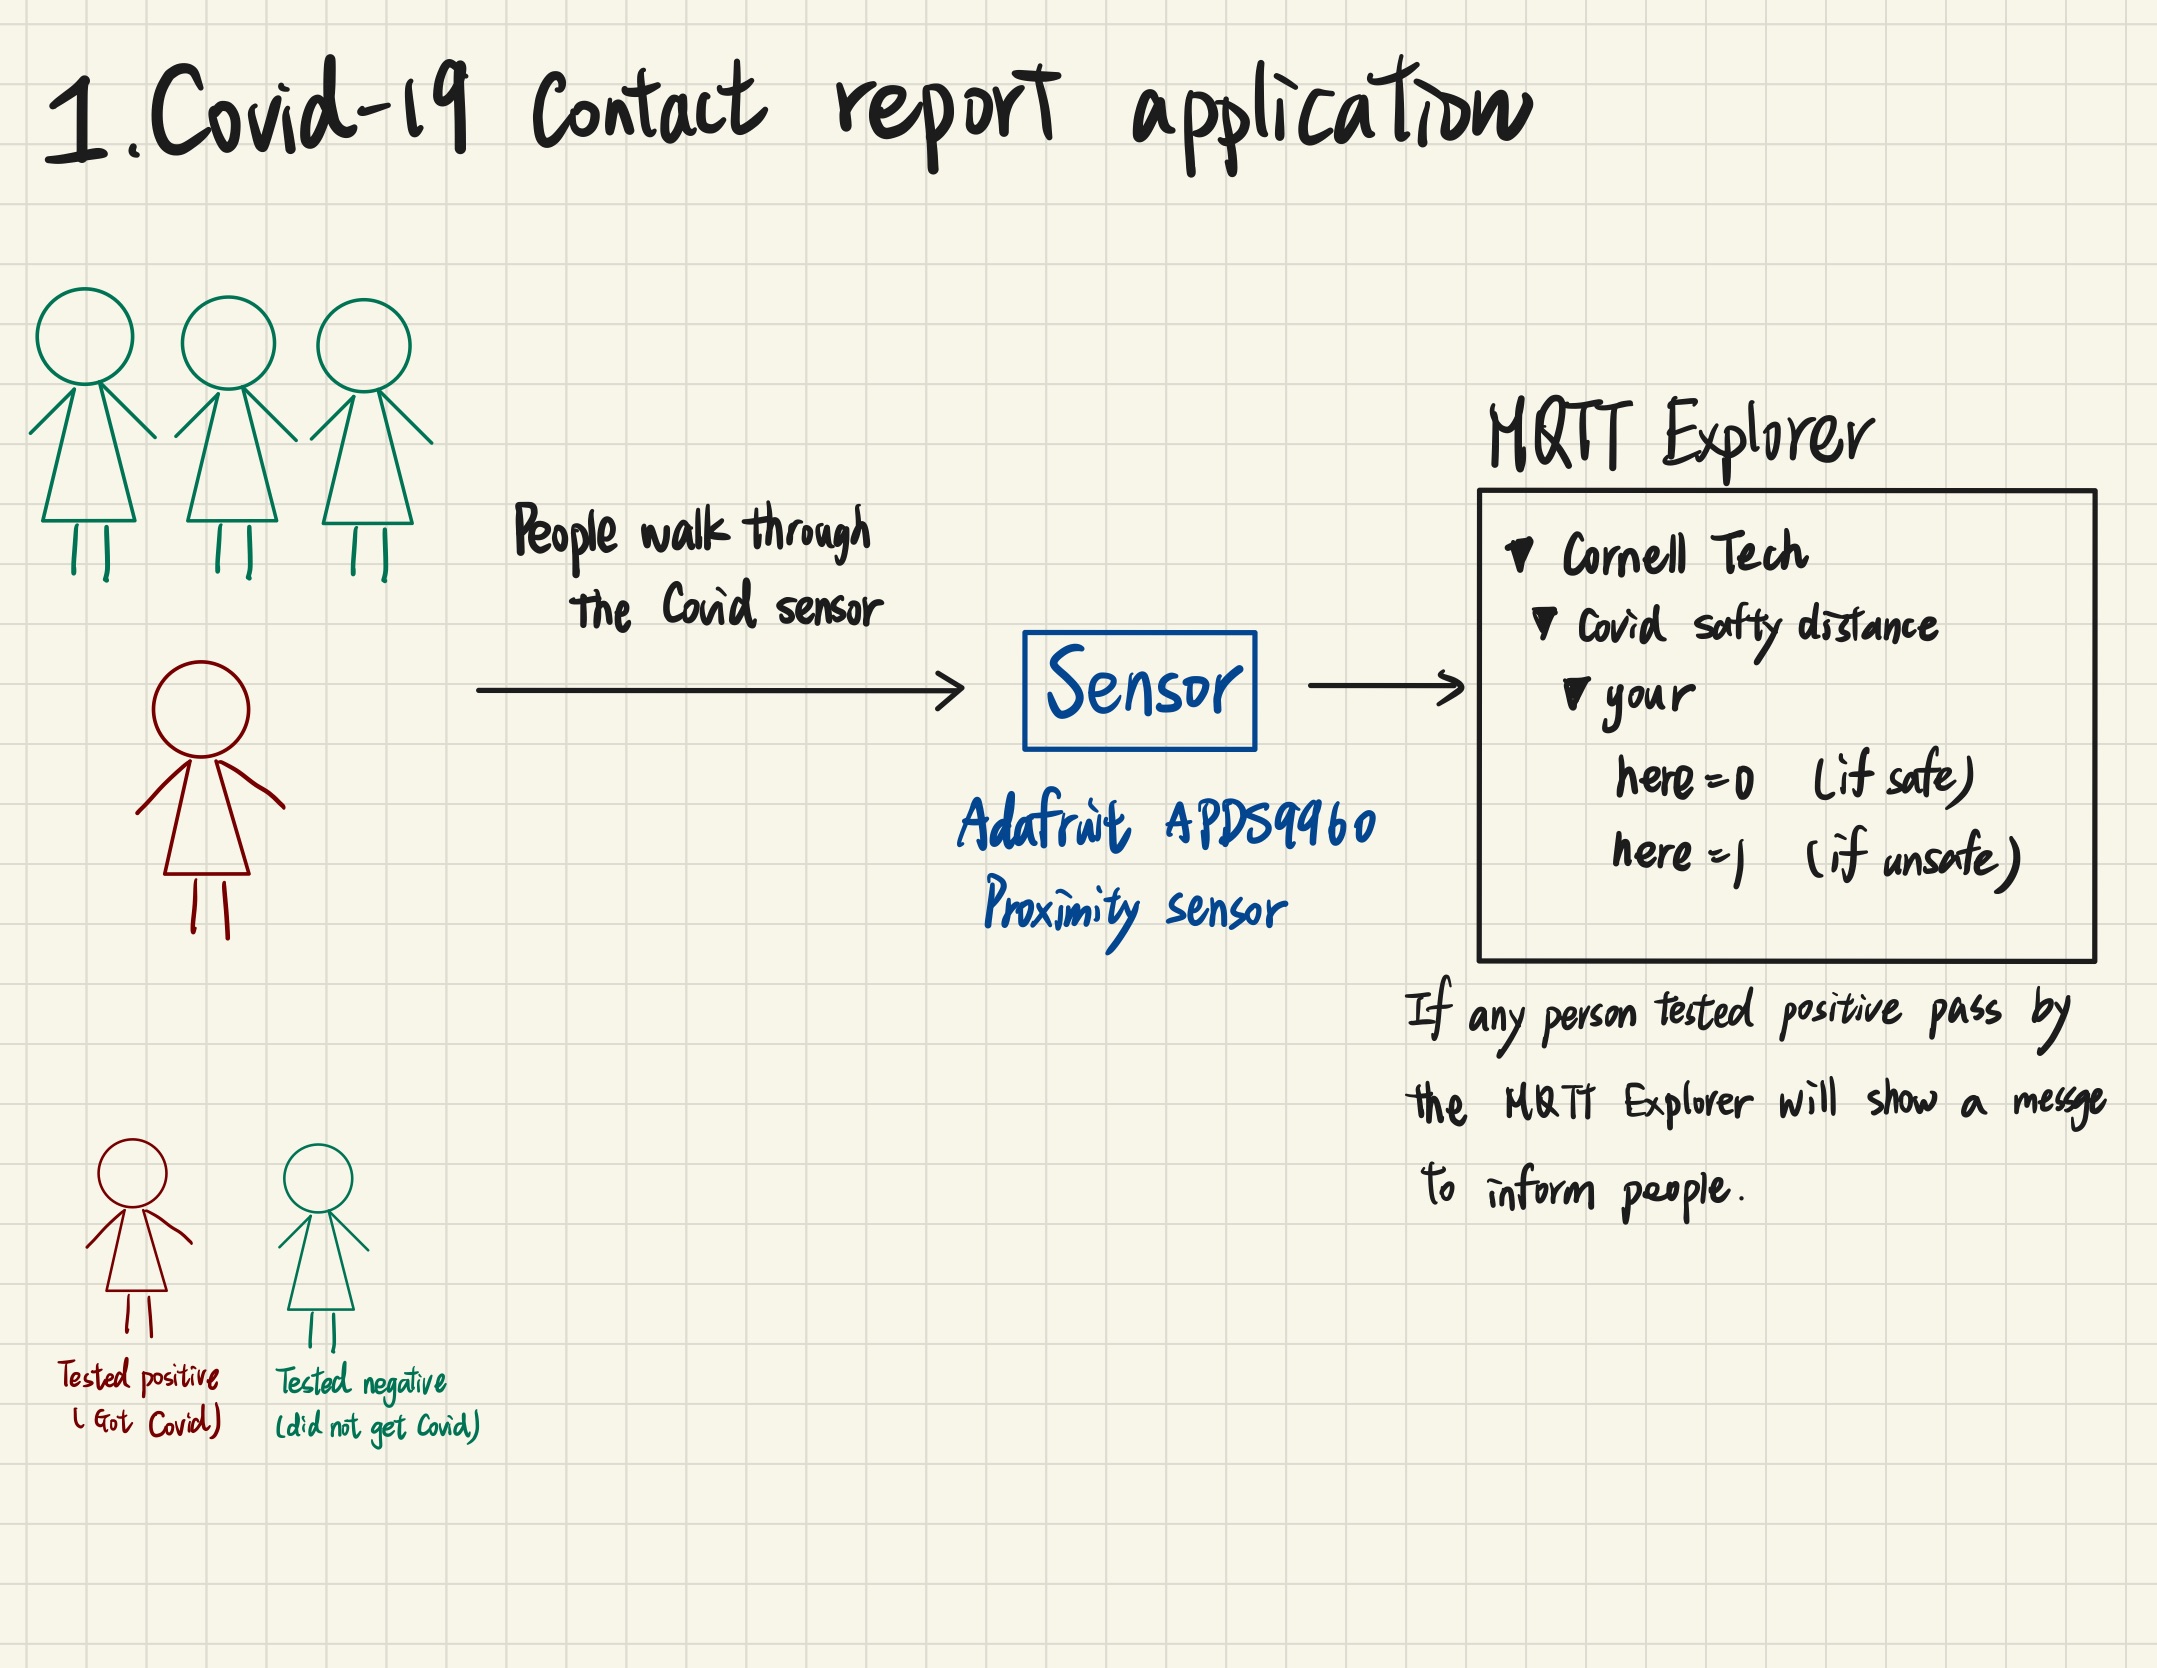 1. Covid-19 Contact report application
People walk through
the Covid sensor
Sensor
Adafruit APDS9960
Proximity sensor
MQTT Explorer
▼ Cornell Tech
▼ Covid safty distance
▼ your
here=0 (if safe)
here=1 (if unsafe)
If any person tested positive pass by
the MQTT Explorer will show a messge
to inform people.
Tested positive
(Got Covid)
Tested negative
(did not get Covid)